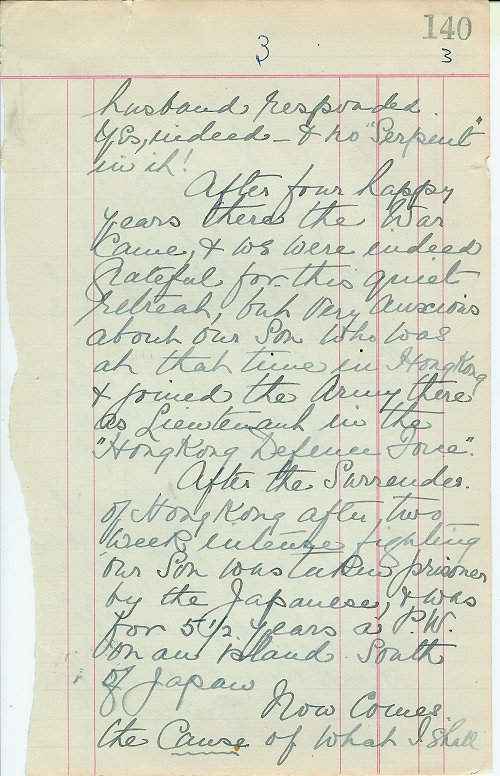 140
3
3
husband responded
Yes, indeed - & no "Serpent"
in it!
After four happy
years there the War
Came, & we were indeed
Grateful for this quiet
retreat, but very anxious
about our Son who was
at that time in HongKong
& joined the Army there
as Lieutenant in the
"HongKong Defence Force".
After the Surrender
of HongKong after two
week intense fighting
our Son was taken prisoner
by the Japanese, & was
for 5 1/2 years a P.W.
on an island South
of Japan
Now Comes
the Cause of what I shall